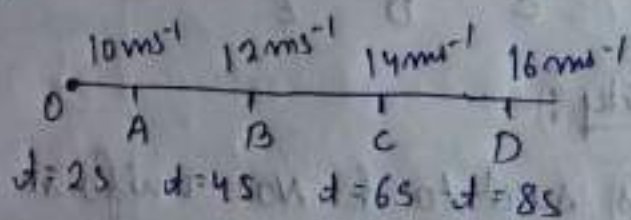 10ms⁻¹ 12ms⁻¹ 14ms⁻¹ 16ms⁻¹
O A B C D
t=2s t=4s t=6s t=8s